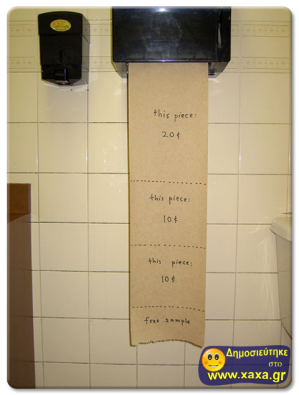 this piece:
20¢
this piece:
10¢
this piece:
10¢
free sample
Δημοσιεύτηκε
στο
www.xaxa.gr